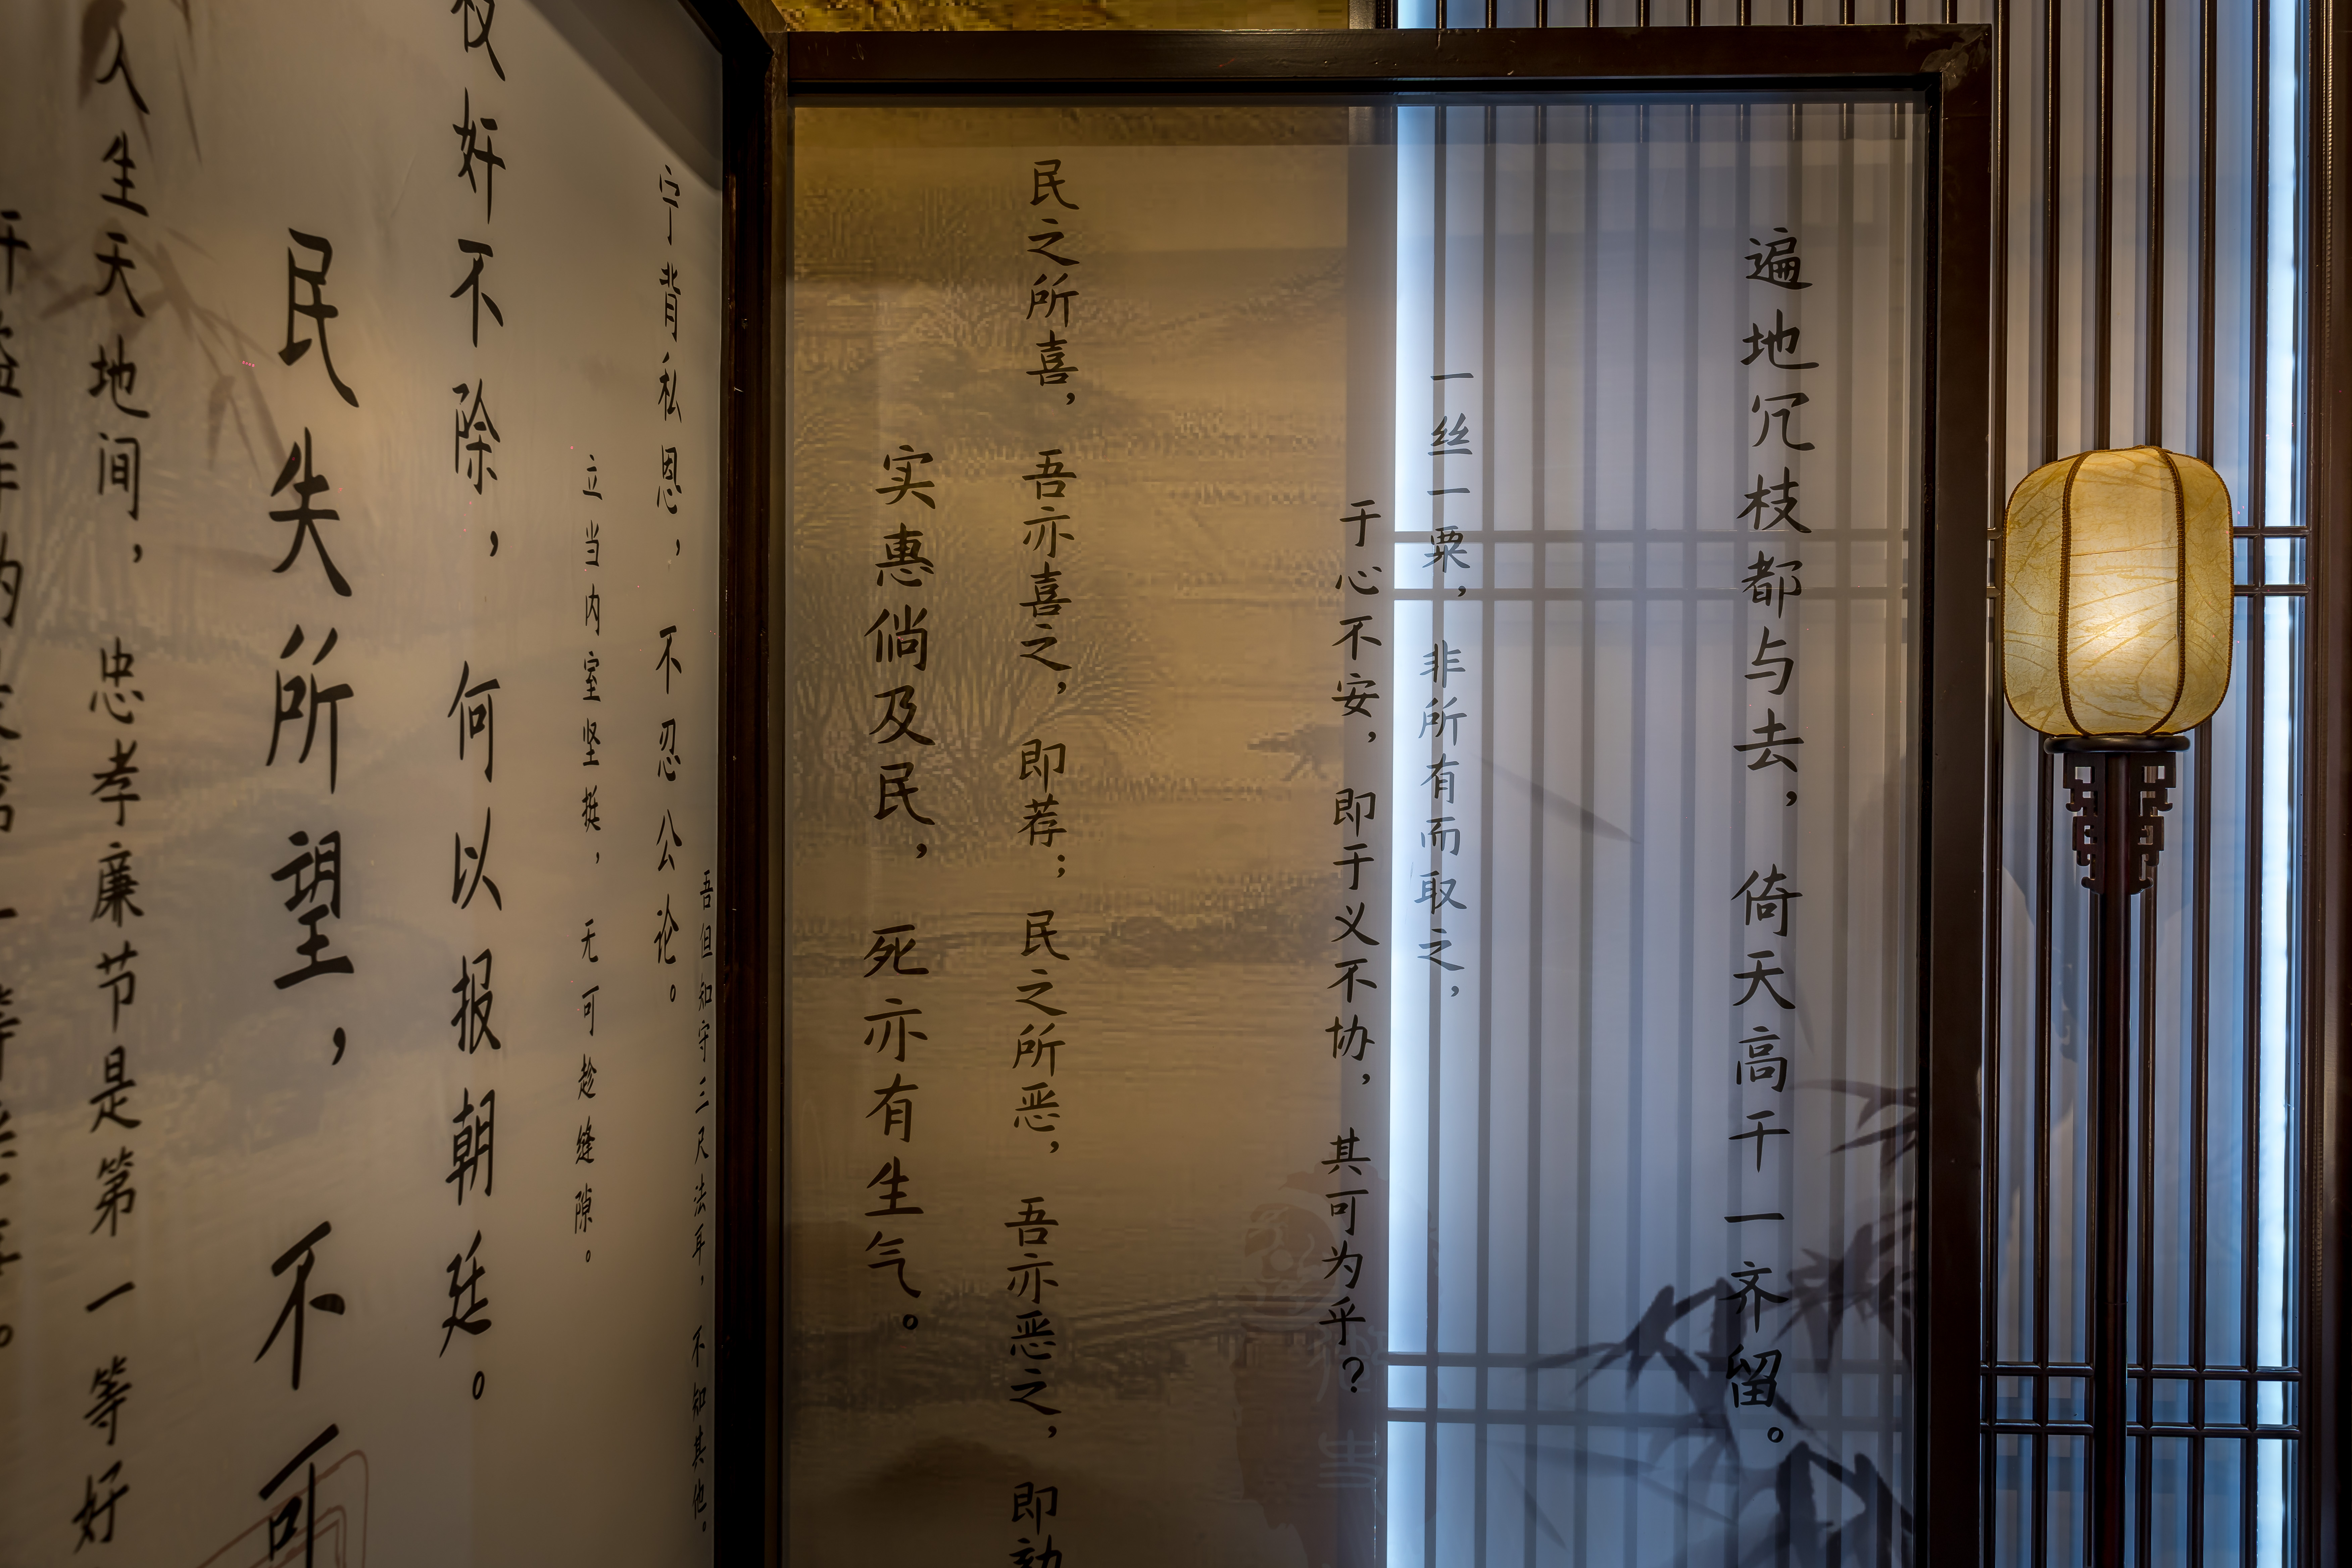 遍地冗枝都与去，倚天高干一齐留。
一丝一粟，非所有而取之，
于心不安，即于义不协，其可为乎？
民之所喜，吾亦喜之，即荐；民之所恶，吾亦恶之，即劾
实惠倘及民，死亦有生气。
吾但知守三尺法耳，不知其他。
宁背私恩，不忍公论。
立当内室坚挺，无可趁缝隙。
权奸不除，何以报朝廷。
民失所望，不可
人生天地间，忠孝廉节是第一等好